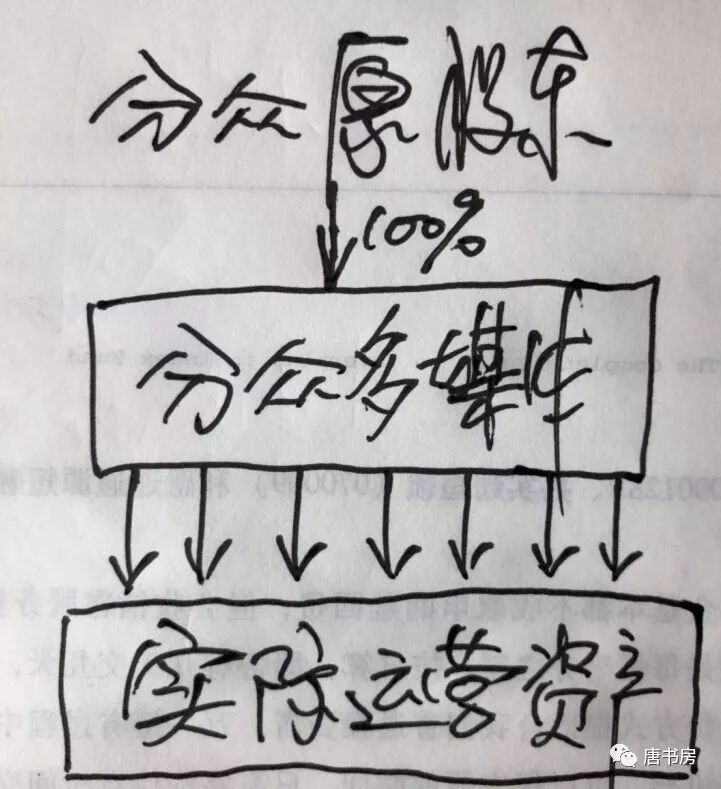 分众原股东
100%
分众多媒体
实际运营资产
唐书房